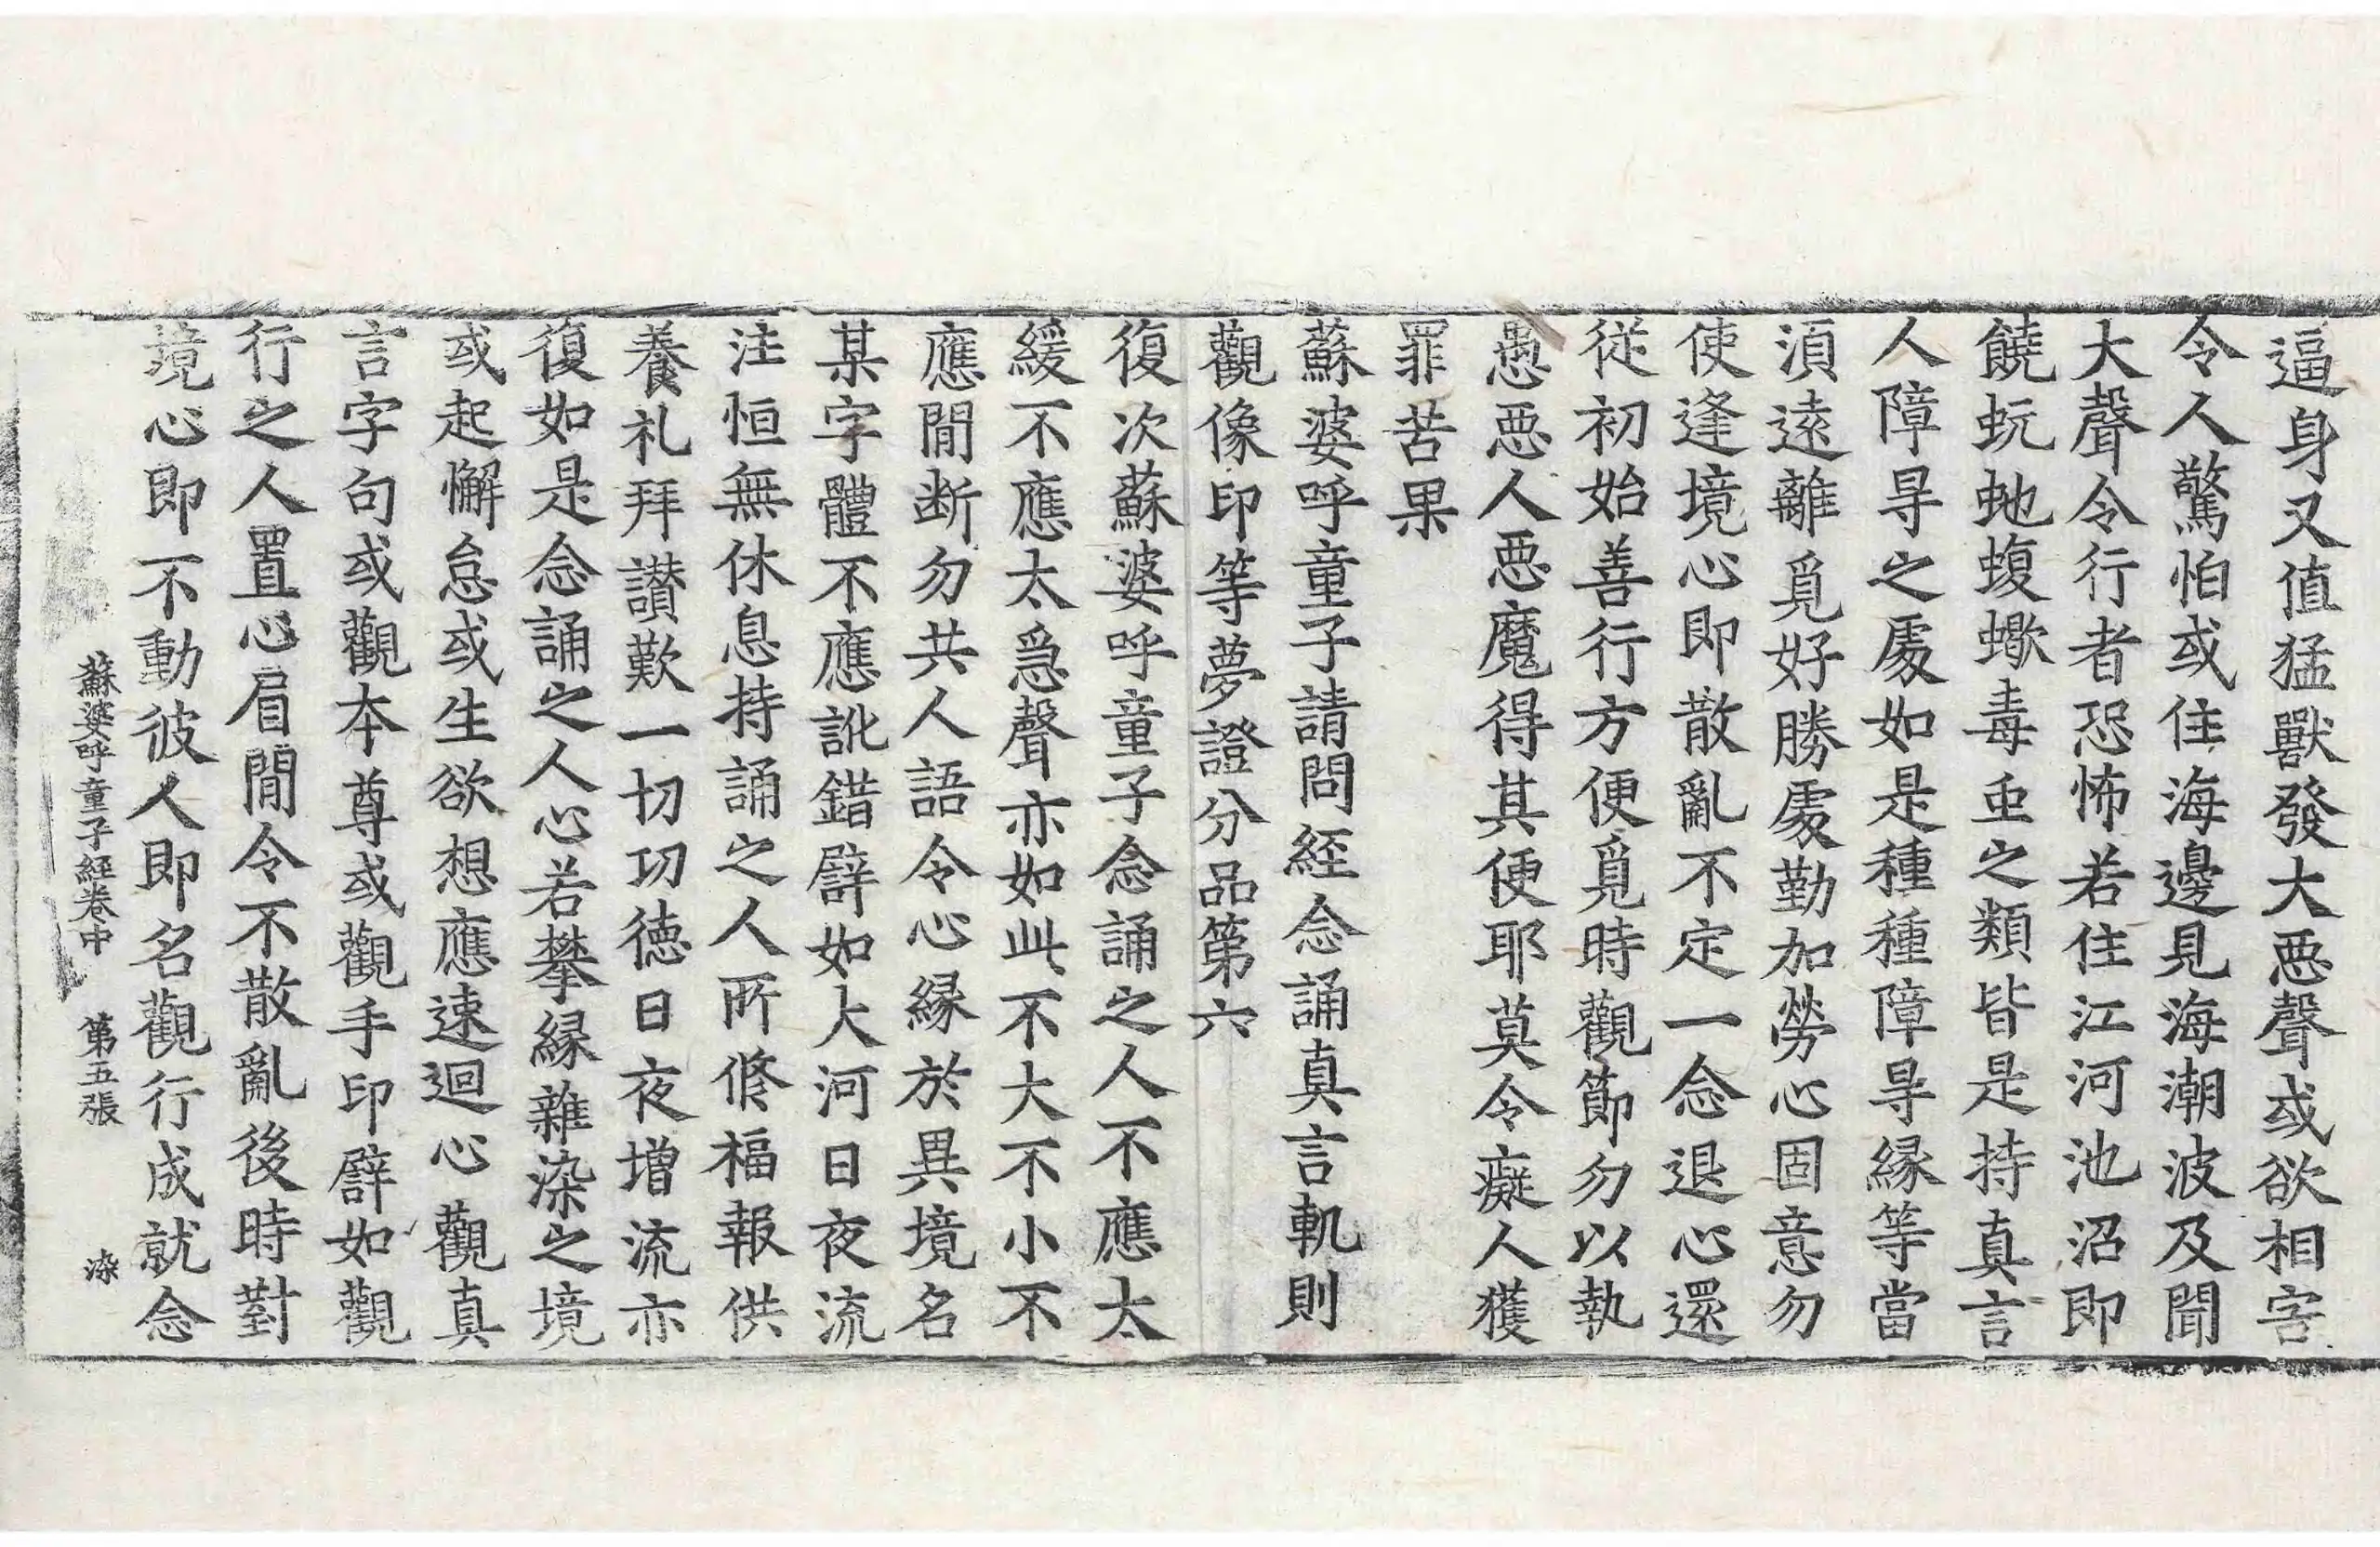 逼身又值猛獸發大恶聲或欲相害
令人驚怕或住海邊見海潮波及聞
大聲令行者恐怖若住江河池沼即
饒蚖虵蝮蠍毒䖝之類皆是持真言
人障㝵之處如是種種障㝵緣等當
湏遠離覓好勝處勤加勞心固意勿
使逢境心即散亂不定一念退心還
從初始善行方便覓時觀節勿以執
愚恶人恶魔得其便耶莫令癡人獲
罪苦果
蘇婆呼童子請問經念誦真言軌則
觀像印等夢證分品第六
復次蘇婆呼童子念誦之人不應太
緩不應太急聲亦如此不大不小不
應閒断勿共人語令心縁於異境名
某字體不應訛錯譬如大河日夜流
注恒無休息持誦之人所修福報供
養礼拜讃歎一切功徳日夜增流亦
復如是念誦之人心若攀縁雜染之境
或起懈怠或生欲想應速迴心觀真
言字句或觀本尊或觀手印譬如觀
行之人置心眉閒令不散亂後時對
境心即不動彼人即名觀行成就念
蘇婆呼童子經卷中 第五張 染